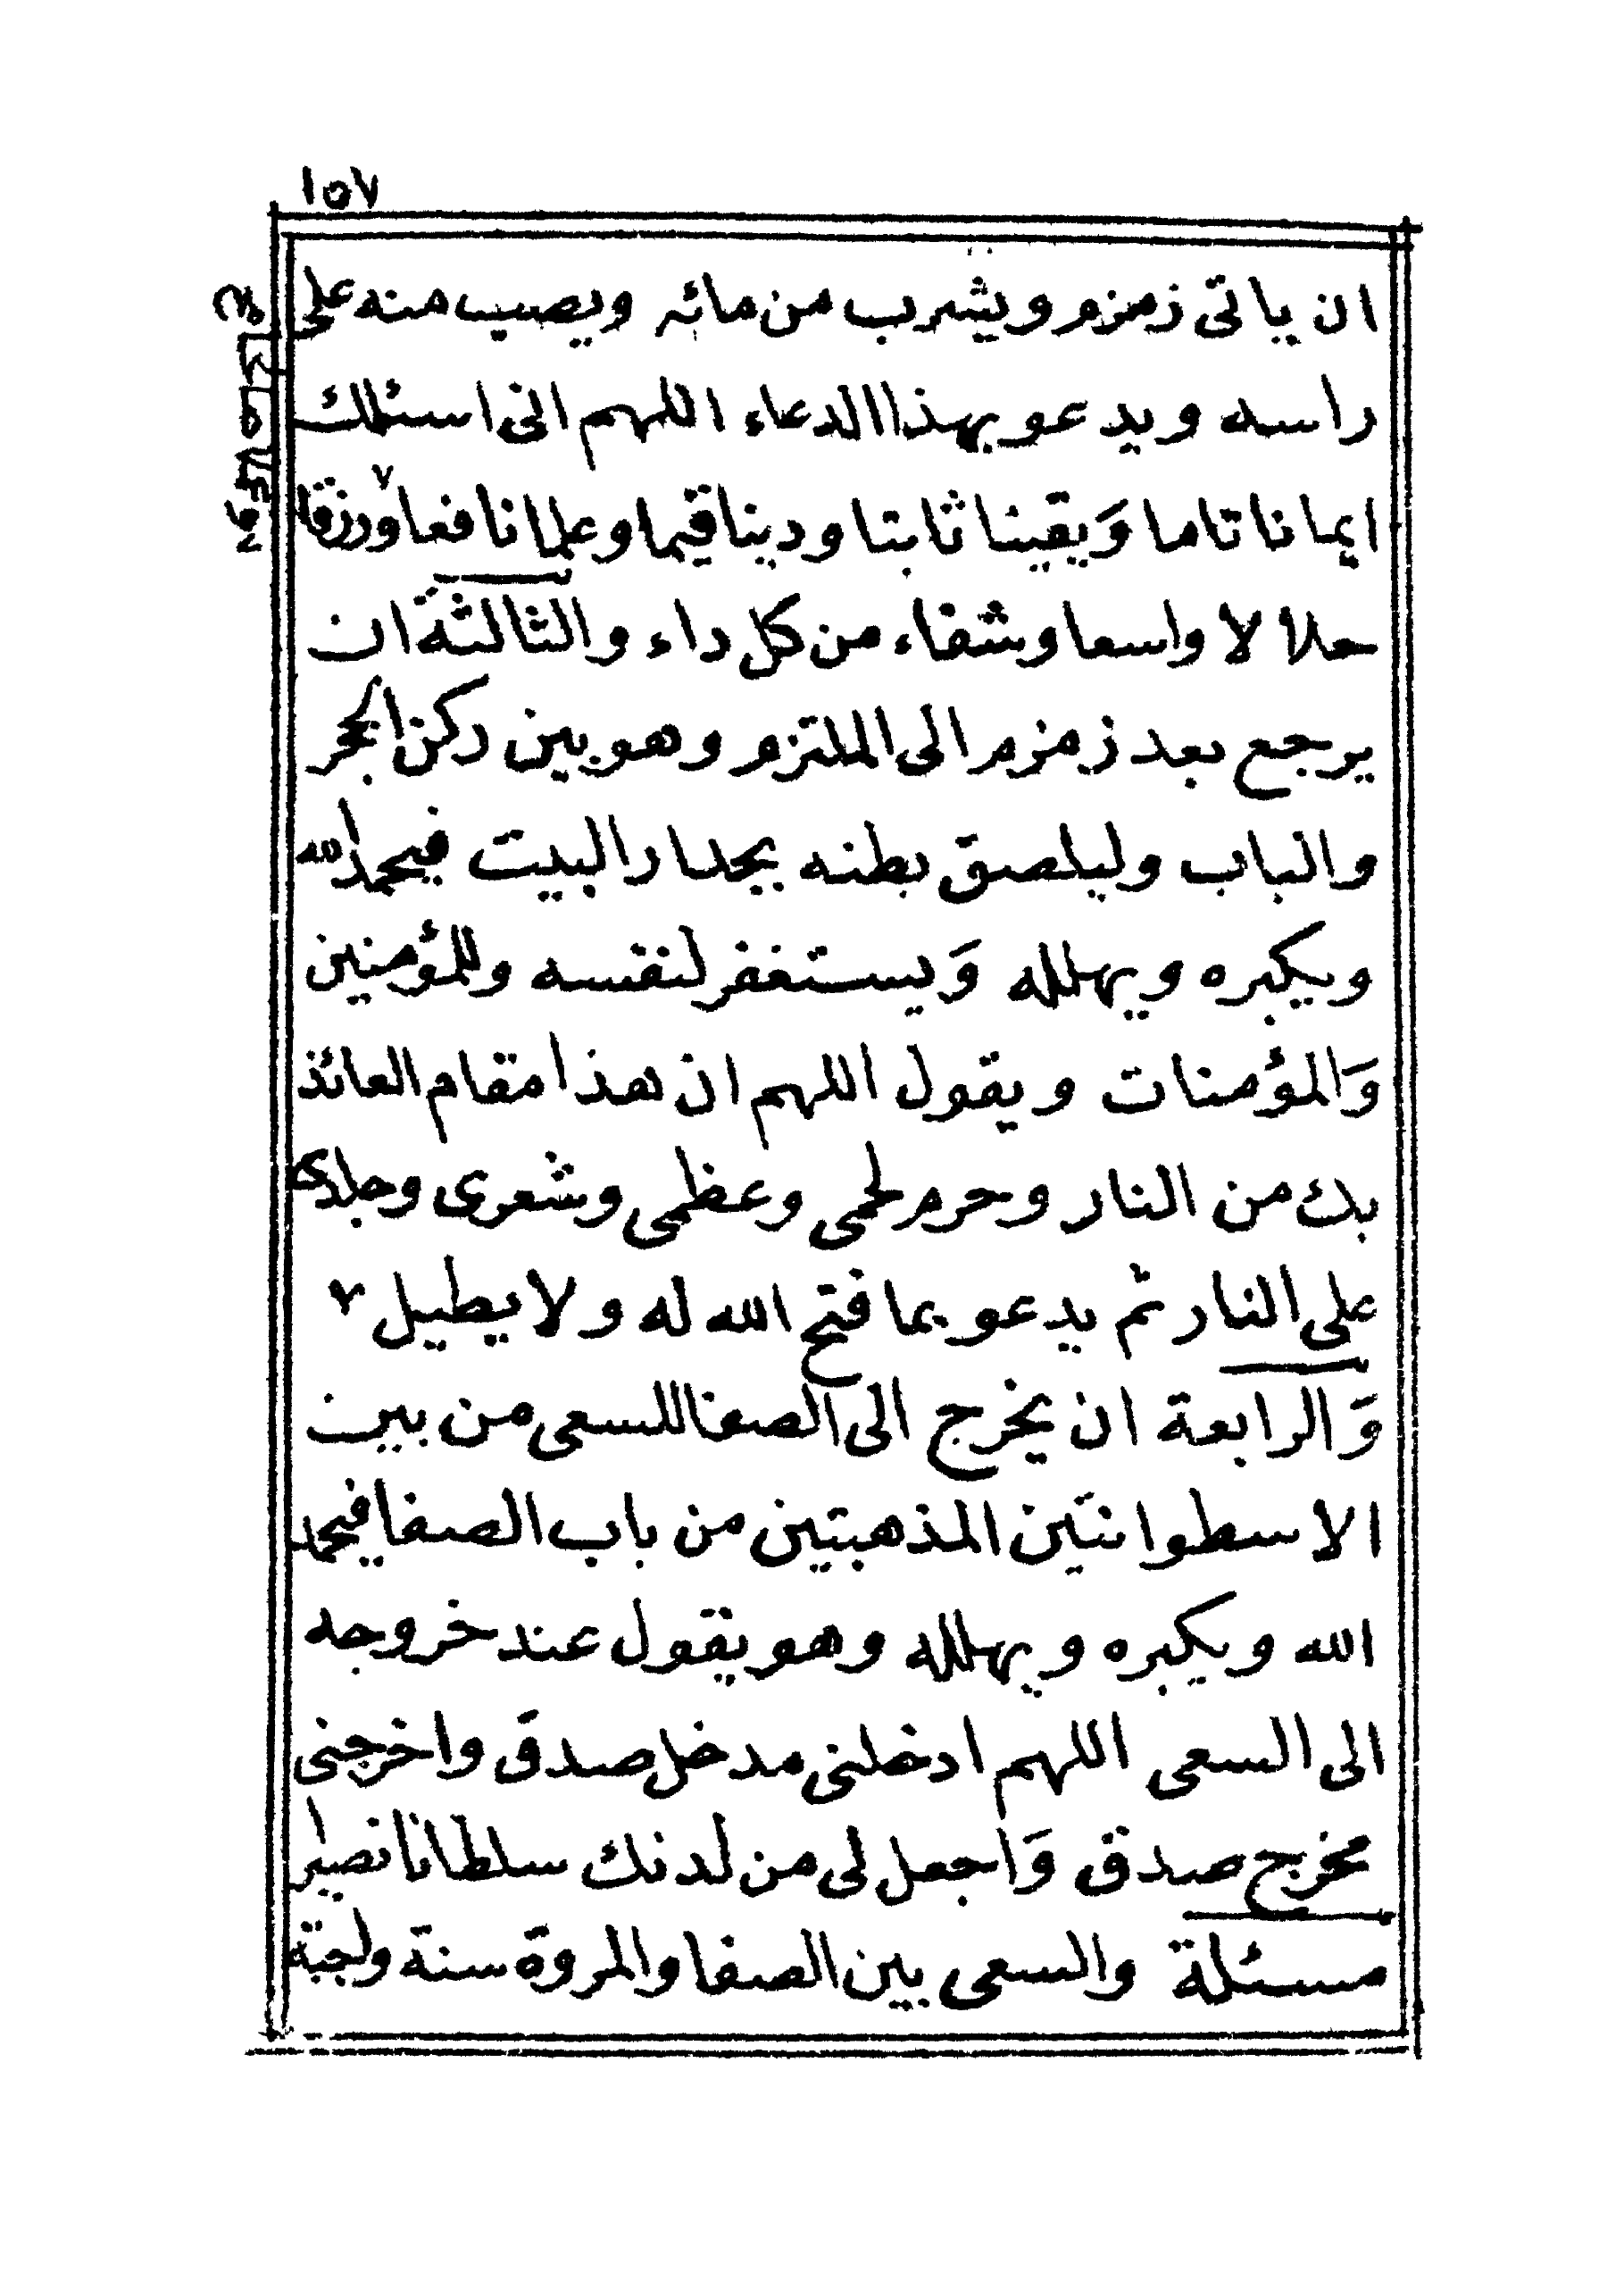 ١٥٧
ان ياتى زمزم ويشرب من مائه ويصيب منه على
راسه ويدعو بهذا الدعاء اللهم انى اسئلك
ايمانا تاما وَيقينا ثابتا ودينا قيما وعلما نافعا ورزقا
حلالا واسعا وشفاء من كل داء والثالثة ان
يرجع بعد زمزم الى الملتزم وهو بين ركن الحجر
والباب وليلصق بطنه بجدار البيت فيحمد الله
ويكبره ويهلله وَيستغفر لنفسه وللمؤمنين
وَالمؤمنات ويقول اللهم ان هذا مقام العائذ
بك من النار وحرم لحمى وعظمى وشعرى وجلدى
على النار ثم يدعو بما فتح الله له ولا يطيل
وَالرابعة ان يخرج الى الصفا للسعى من بين
الاسطوانتَين المذهبتين من باب الصفا فيحمد
الله ويكبره ويهلله وهو يقول عند خروجه
الى السعى اللهم ادخلنى مدخل صدق واخرجنى
مخرج صدق وَاجعل لى من لدنك سلطانا نصيرا
مسئلة والسعى بين الصفا والمروة سنة ولجبة